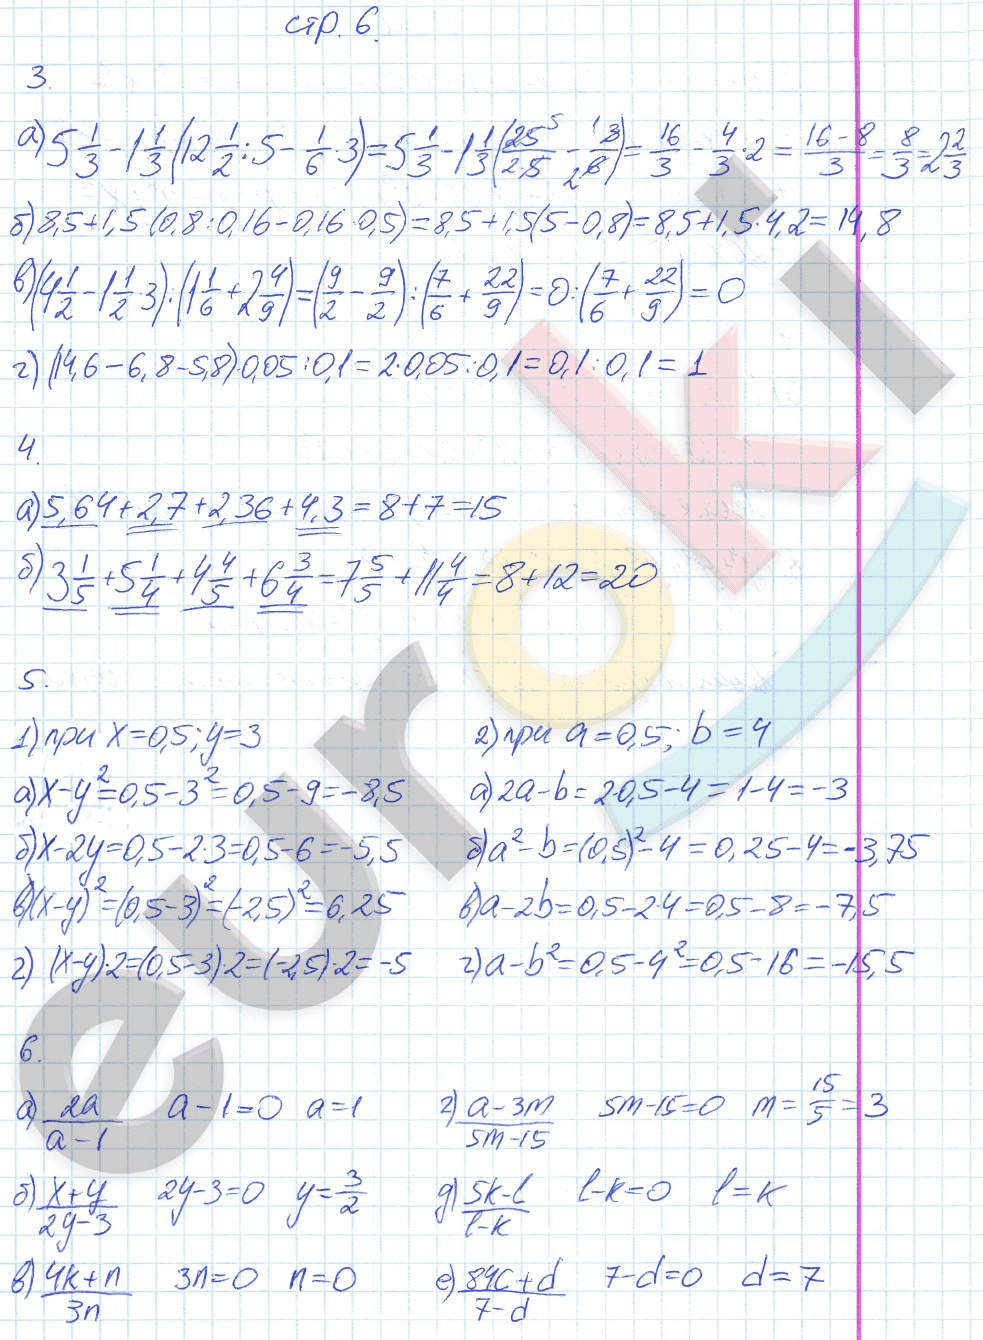 стр. 6.
3.
а) 5 1/3 − 1 1/3 (12 1/2 : 5 − 1/6 · 3) = 5 1/3 − 1 1/3 (25 5/2·5 − 1 3/2 6) = 16/3 − 4/3 · 2 = 16−8/3 = 8/3 = 2 2/3
б) 8,5+1,5(0,8:0,16−0,16·0,5)=8,5+1,5(5−0,8)=8,5+1,5·4,2=14,8
в) (4 1/2 − 1 1/2 · 3) : (1 1/6 + 2 4/9) = (9/2 − 9/2) : (7/6 + 22/9) = 0 : (7/6 + 22/9) = 0
г) (14,6−6,8−5,8)·0,05:0,1=2·0,05:0,1=0,1:0,1=1
4.
а) 5,64+2,7+2,36+4,3=8+7=15
б) 3 1/5 + 5 1/4 + 4 4/5 + 6 3/4 = 7 5/5 + 11 4/4 = 8+12=20
5.
1) при x=0,5; y=3
а) x−y²=0,5−3²=0,5−9=−8,5
б) x−2y=0,5−2·3=0,5−6=−5,5
в) (x−y)²=(0,5−3)²=(−2,5)²=6,25
г) (x−y)·2=(0,5−3)·2=(−2,5)·2=−5
2) при a=0,5; b=4
а) 2a−b=2·0,5−4=1−4=−3
б) a²−b=(0,5)²−4=0,25−4=−3,75
в) a−2b=0,5−2·4=0,5−8=−7,5
г) a−b²=0,5−4²=0,5−16=−15,5
6.
а) 2a/a−1 a−1=0 a=1
б) x+y/2y−3 2y−3=0 y=3/2
в) 4k+n/3n 3n=0 n=0
г) a−3m/5m−15 5m−15=0 m=15/5=3
д) 5k−l/l−k l−k=0 l=k
е) 84c+d/7−d 7−d=0 d=7
euroki